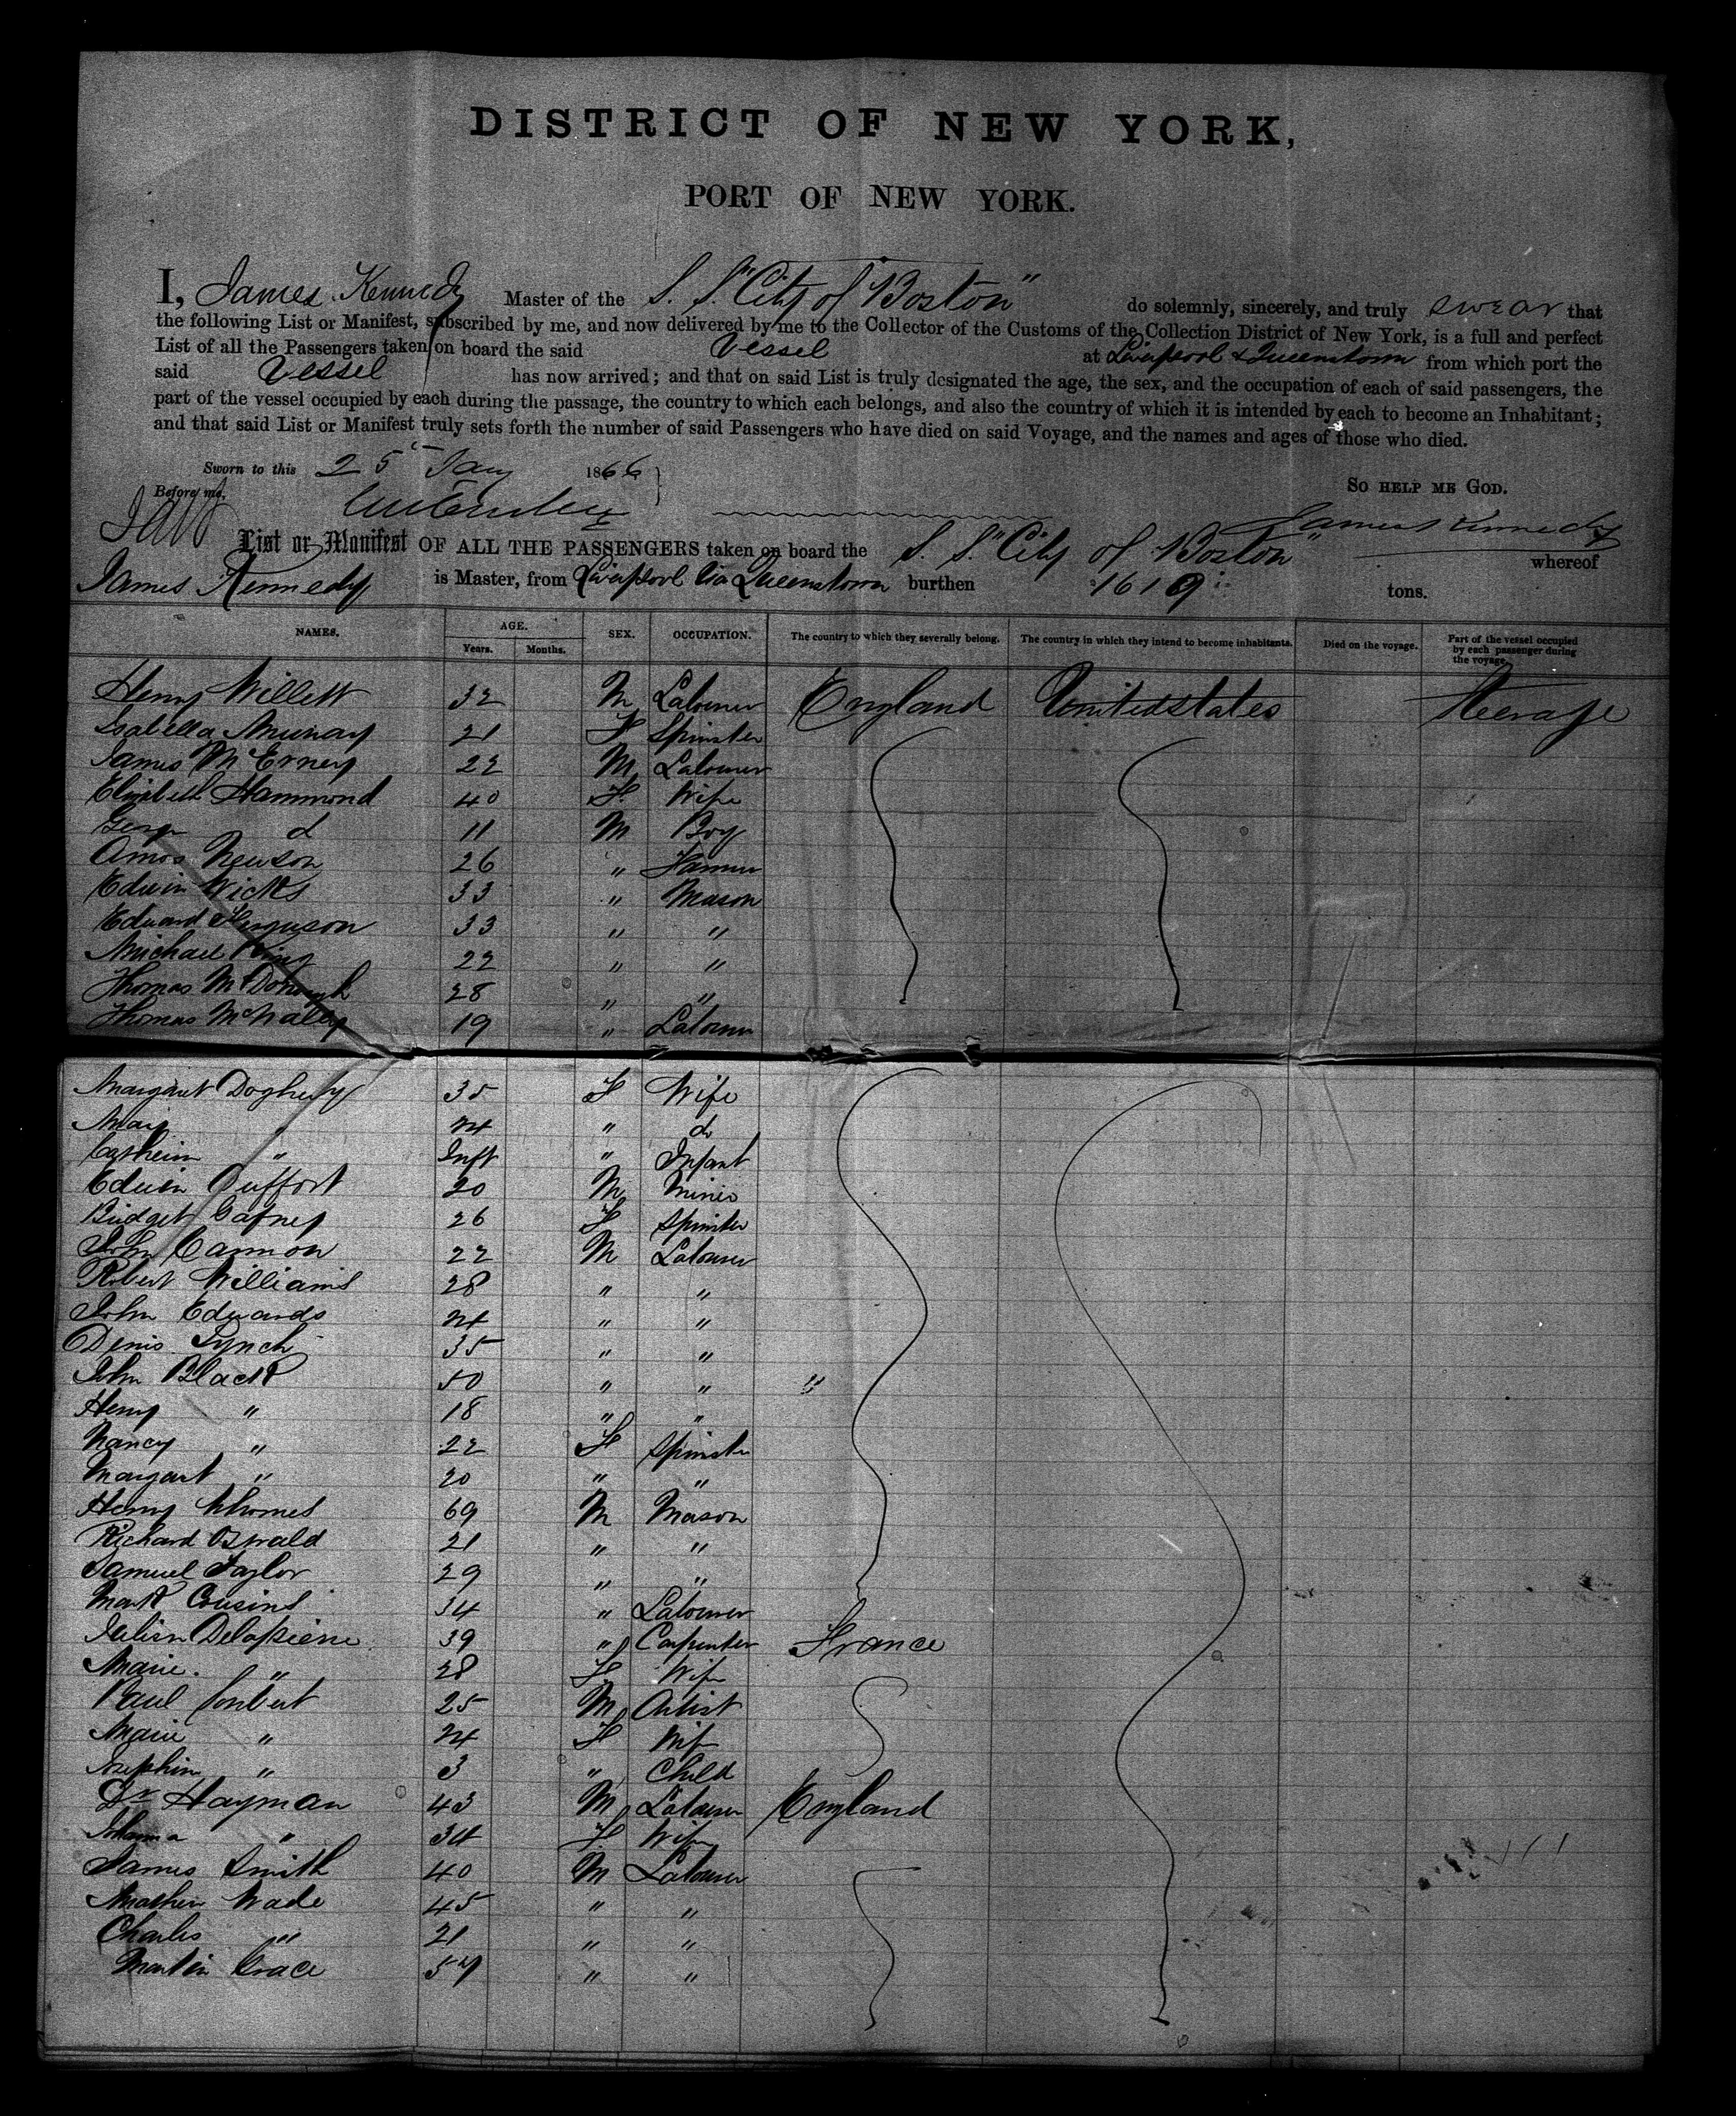 DISTRICT OF NEW YORK,
PORT OF NEW YORK.
I, James Kennedy Master of the S. S. "City of Boston" do solemnly, sincerely, and truly swear that
the following List or Manifest, subscribed by me, and now delivered by me to the Collector of the Customs of the Collection District of New York, is a full and perfect
List of all the Passengers taken on board the said Vessel at Liverpool & Queenstown from which port the
said Vessel has now arrived; and that on said List is truly designated the age, the sex, and the occupation of each of said passengers, the
part of the vessel occupied by each during the passage, the country to which each belongs, and also the country of which it is intended by each to become an Inhabitant;
and that said List or Manifest truly sets forth the number of said Passengers who have died on said Voyage, and the names and ages of those who died.
Sworn to this 25 Jany 1866
So HELP ME GOD.
Before me,
James Kennedy
List or Manifest OF ALL THE PASSENGERS taken on board the S. S. "City of Boston" whereof
James Kennedy is Master, from Liverpool via Queenstown burthen 1619 tons.
NAMES. AGE. Years. Months. SEX. OCCUPATION. The country to which they severally belong. The country in which they intend to become inhabitants. Died on the voyage. Part of the vessel occupied by each passenger during the voyage.
Henry Willett 32 M Labourer England United States Steerage
Isabella Murray 21 F Spinster
James McErney 22 M Labourer
Elizabeth Hammond 40 F. Wife
George d 11 M Boy
Amos Newson 26 " Farmer
Edwin Wicks 33 " Mason
Edward Ferguson 33 " "
Michael King 22 " "
Thomas McDonugh 28 " "
Thomas McNally 19 " Labourer
Margaret Doghery 35 F Wife
Mary " 24 " do
Catherin " Inft " Infant
Edwin 20 M Miner
Bridget Gafney 26 F Spinster
John Cannon 22 M Labourer
Robert Williams 28 " "
John Edwards 24 " "
Denis Lynch 35 " "
John Black 50 " " "
Henry " 18 " "
Nancy " 22 F Spinster
Margaret " 20 " "
Henry 69 M Mason
Richard Oswald 21 " "
Samuel Taylor 29 " "
Mark Cousins 34 " Labourer
Julien Delapierre 39 " Carpenter France
Marie. " 28 F Wife
Paul 25 M Artist
Marie " 24 F Wife
Josephine " 3 " Child
Dr Hayman 43 M Labourer England
Johanna " 34 F Wife
James Smith 40 M Labourer
Mathew Wade 45 " "
Charles " 21 " "
Martin Grace 57 " "